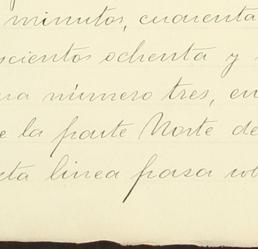 minutos, cuarenta
scientos ochenta y
na número tres, en
e la parte Norte de
ta linea pasa so